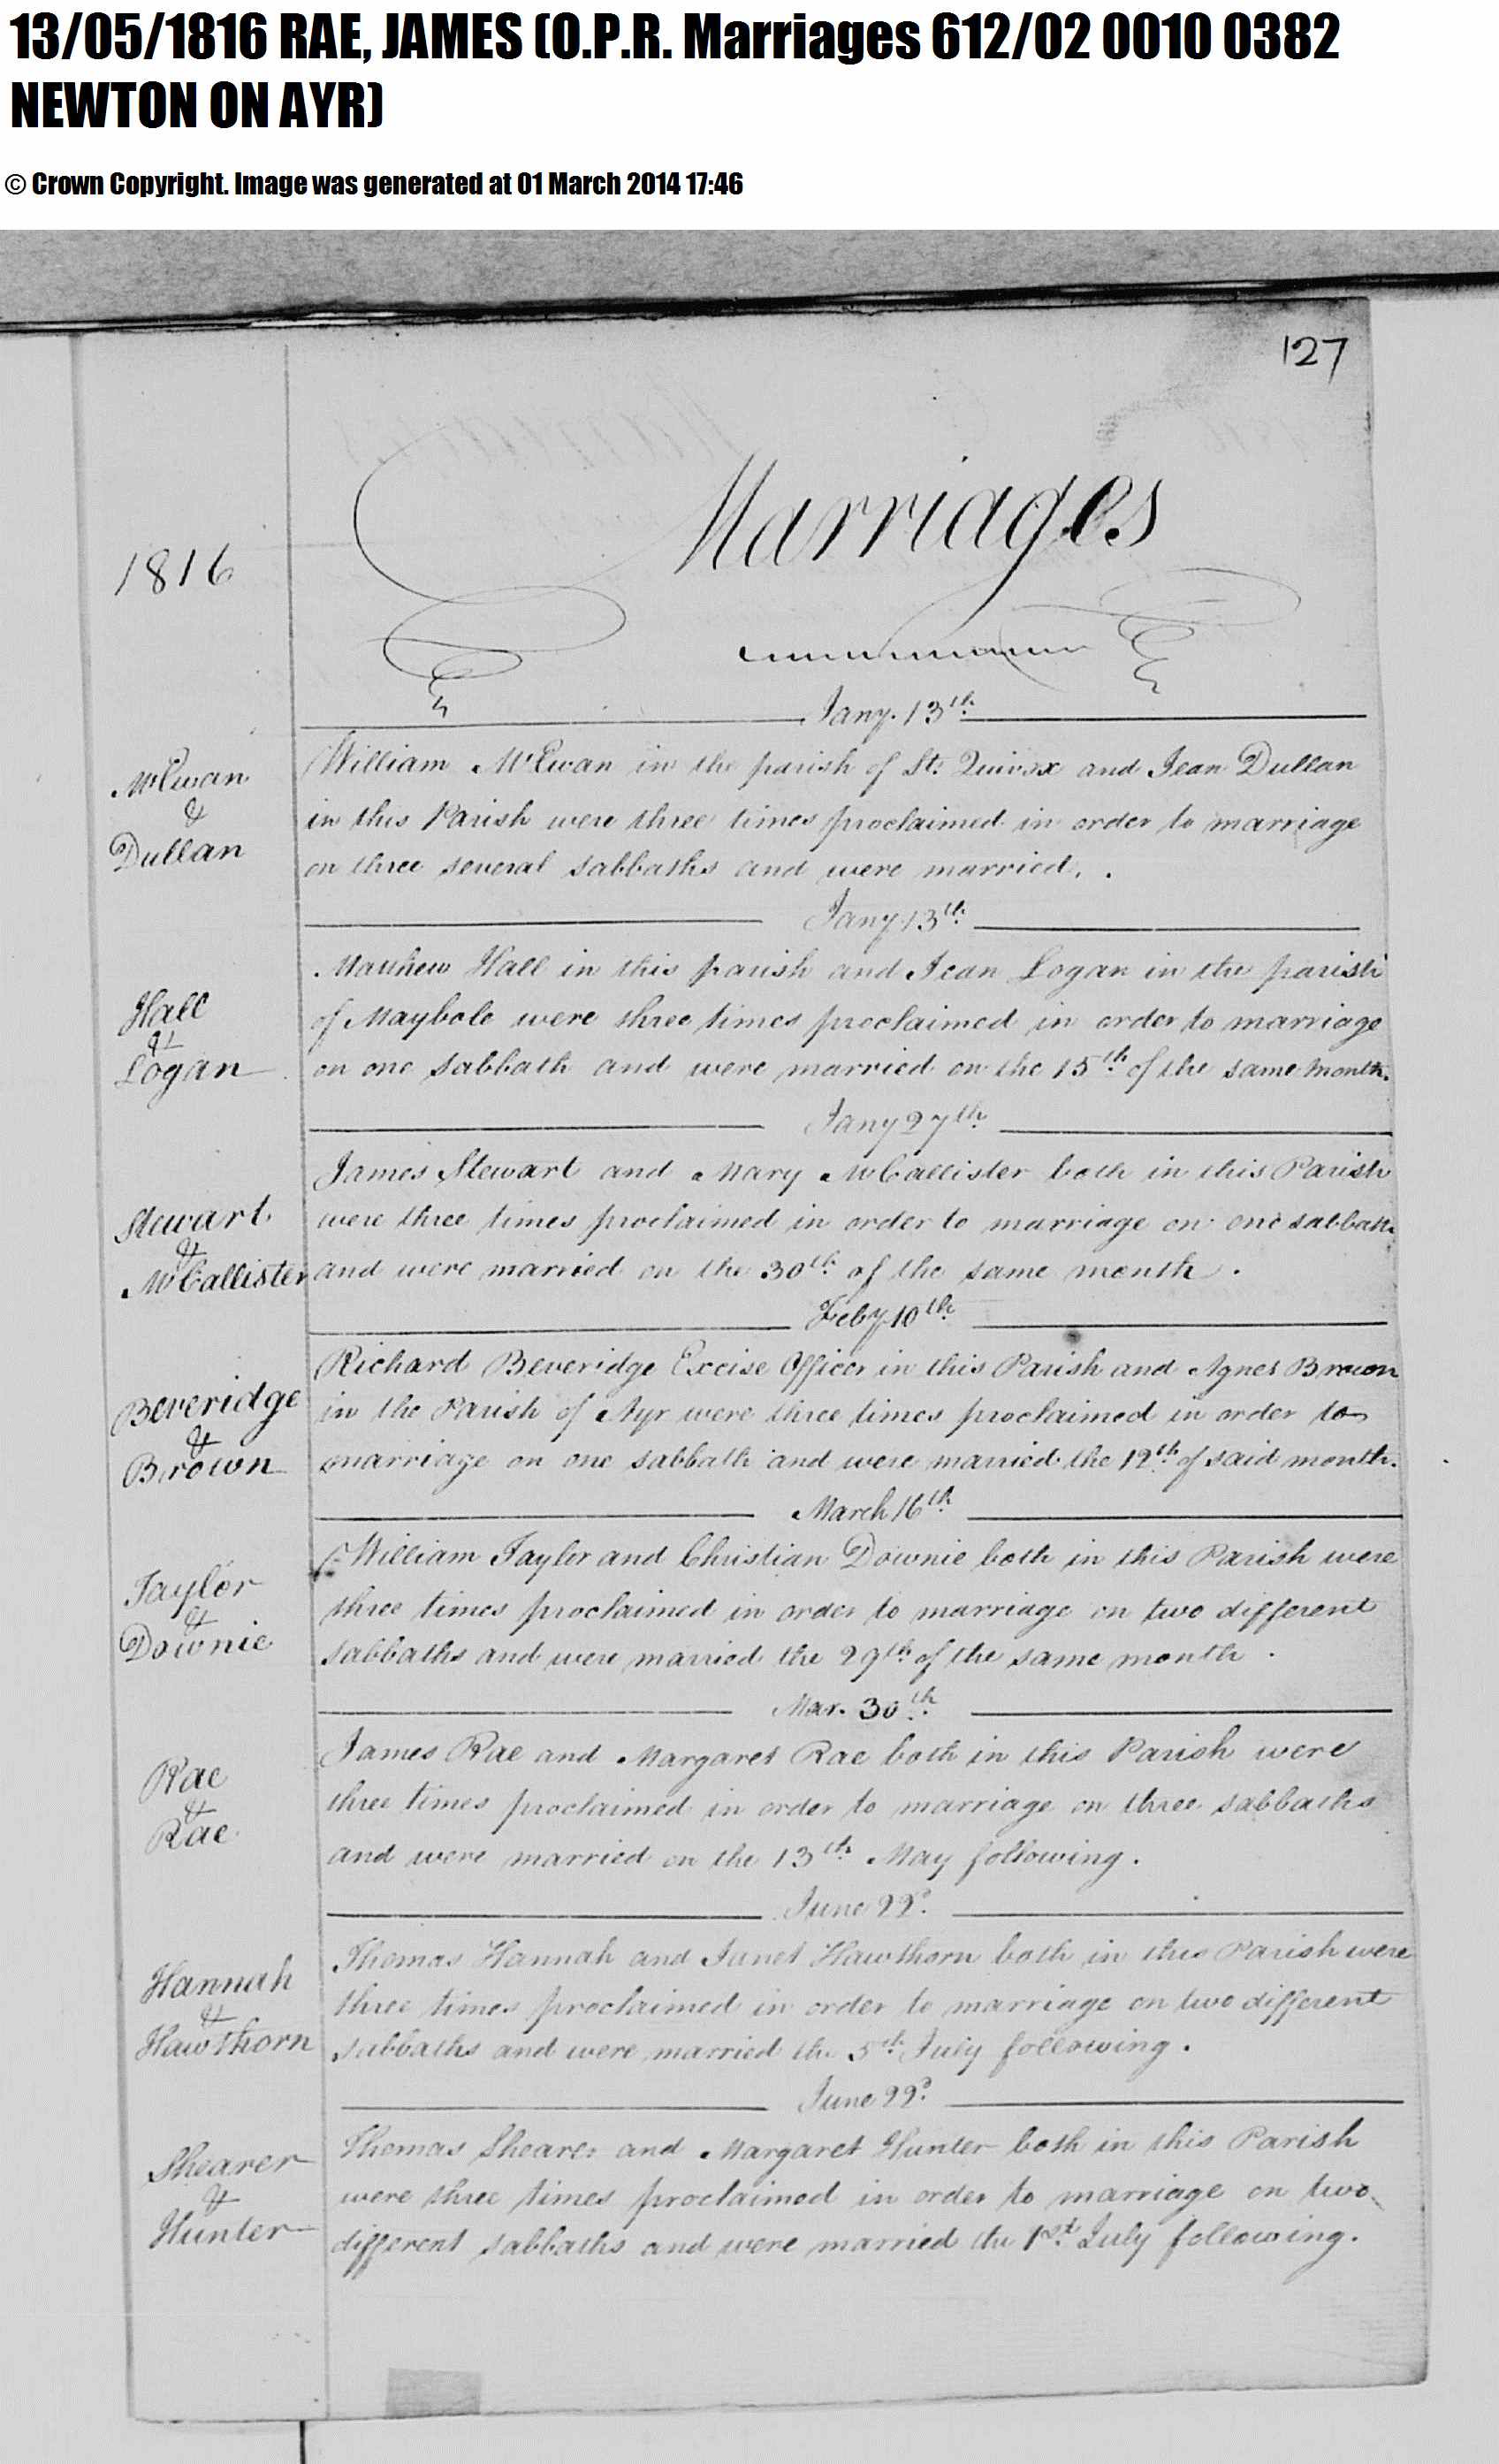 13/05/1816 RAE, JAMES (O.P.R. Marriages 612/02 0010 0382
NEWTON ON AYR)
© Crown Copyright. Image was generated at 01 March 2014 17:46
127
Marriages
1816
Jany. 13th
McEwan
&
Dullan
William McEwan in the parish of St. Quivox and Jean Dullan
in this Parish were three times proclaimed in order to marriage
on three several sabbaths and were married.
Jany 13th
Hall
&
Logan
Mathew Hall in this parish and Jean Logan in the parish
of Maybole were three times proclaimed in order to marriage
on one sabbath and were married on the 15th of the same month.
Jany 27th
Stewart
&
McCallister
James Stewart and Mary McCallister both in this Parish
were three times proclaimed in order to marriage on one sabbath
and were married on the 30th of the same month.
Feby 10th
Beveridge
&
Brown
Richard Beveridge Excise Officer in this Parish and Agnes Brown
in the Parish of Ayr were three times proclaimed in order to
marriage on one sabbath and were married the 12th of said month.
March 16th
Taylor
&
Downie
William Taylor and Christian Downie both in this Parish were
three times proclaimed in order to marriage on two different
sabbaths and were married the 29th of the same month.
Mar. 30th
Rae
&
Rae
James Rae and Margaret Rae both in this Parish were
three times proclaimed in order to marriage on three sabbaths
and were married on the 13th May following.
June 22d
Hannah
&
Hawthorn
Thomas Hannah and Janet Hawthorn both in this Parish were
three times proclaimed in order to marriage on two different
sabbaths and were married the 5th July following.
June 22d
Shearer
&
Hunter
Thomas Shearer and Margaret Hunter both in this Parish
were three times proclaimed in order to marriage on two
different sabbaths and were married the 1st July following.